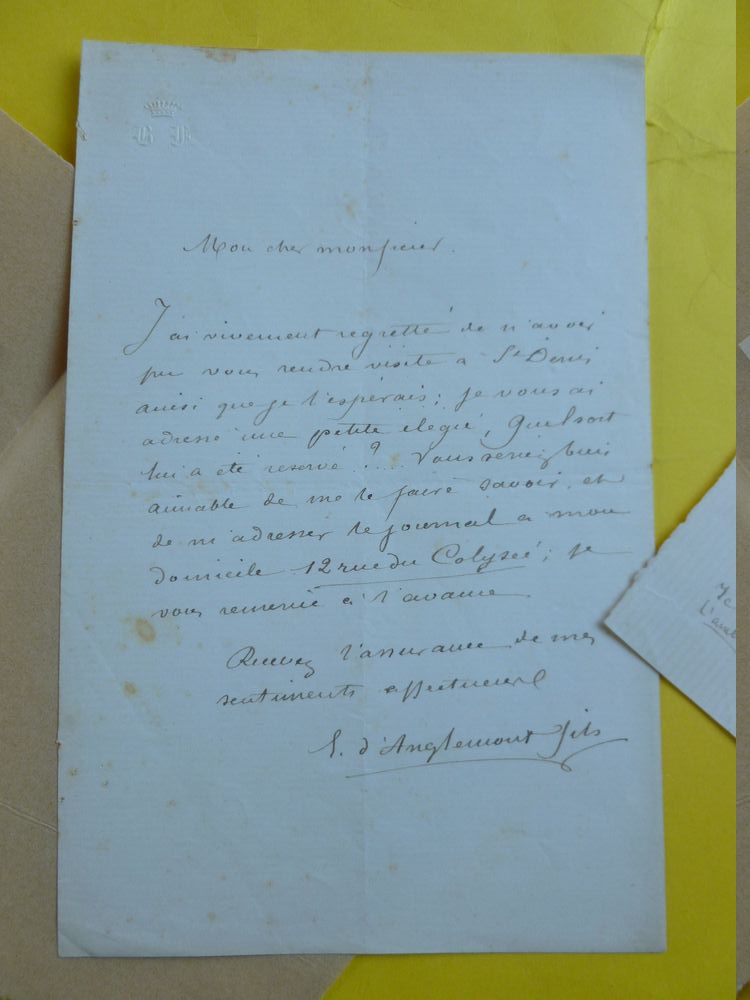 Mon cher monsieur.
J'ai vivement regretté de n'avoir
pu vous rendre visite à St Denis
ainsi que je l'espérais; je vous ai
adressé une petite élégie, Quel sort
lui a été réservé?.... Vous seriez bien
aimable de me le faire savoir, et
de m'adresser le journal à mon
domicile 12 rue du Colysée; je
vous remercie à l'avance.
Recevez l'assurance de mes
sentiments affectueux
d'Anglemont fils